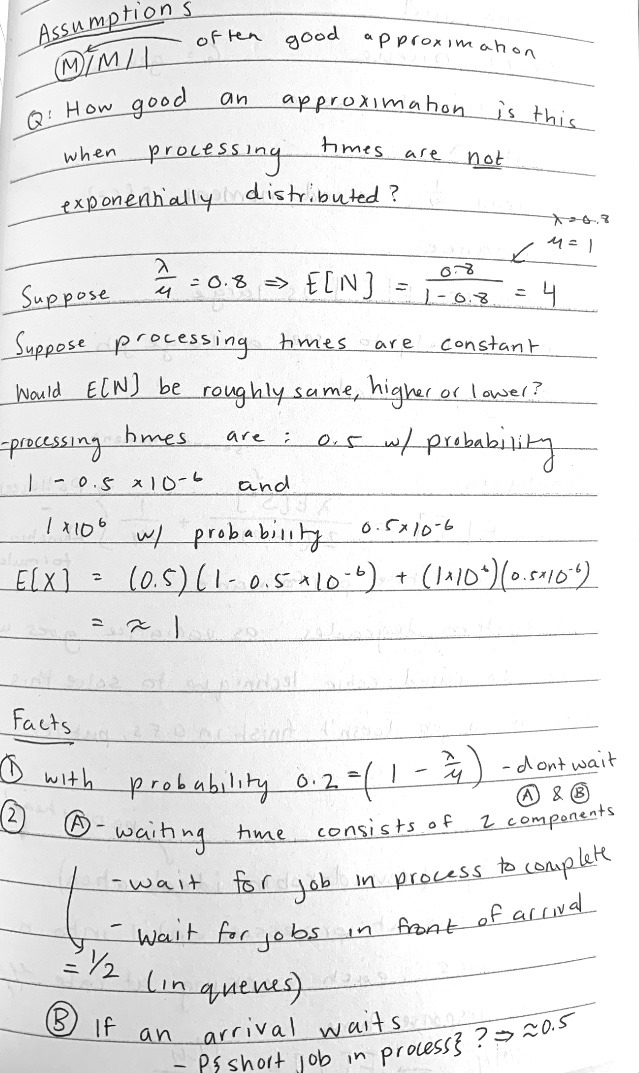 Assumptions
(M)/M/1 often good approximation
Q: How good an approximation is this
when processing times are not
exponentially distributed?
λ=0.8
μ=1
Suppose λ/μ = 0.8 ⇒ E[N] = 0.8/(1-0.8) = 4
Suppose processing times are constant
Would E[N] be roughly same, higher or lower?
-processing times are : 0.5 w/ probability
1 - 0.5 x10-6 and
1x10^6 w/ probability 0.5x10^-6
E[X] = (0.5)(1-0.5x10^-6) + (1x10^6)(0.5x10^-6)
= ≈ 1
Facts
① with probability 0.2 = (1 - λ/μ) - dont wait
Ⓐ & Ⓑ
② Ⓐ - waiting time consists of 2 components
- wait for job in process to complete
- wait for jobs in front of arrival
= 1/2 (in queues)
Ⓑ If an arrival waits
- P{short job in process} ? ⇒ ≈0.5